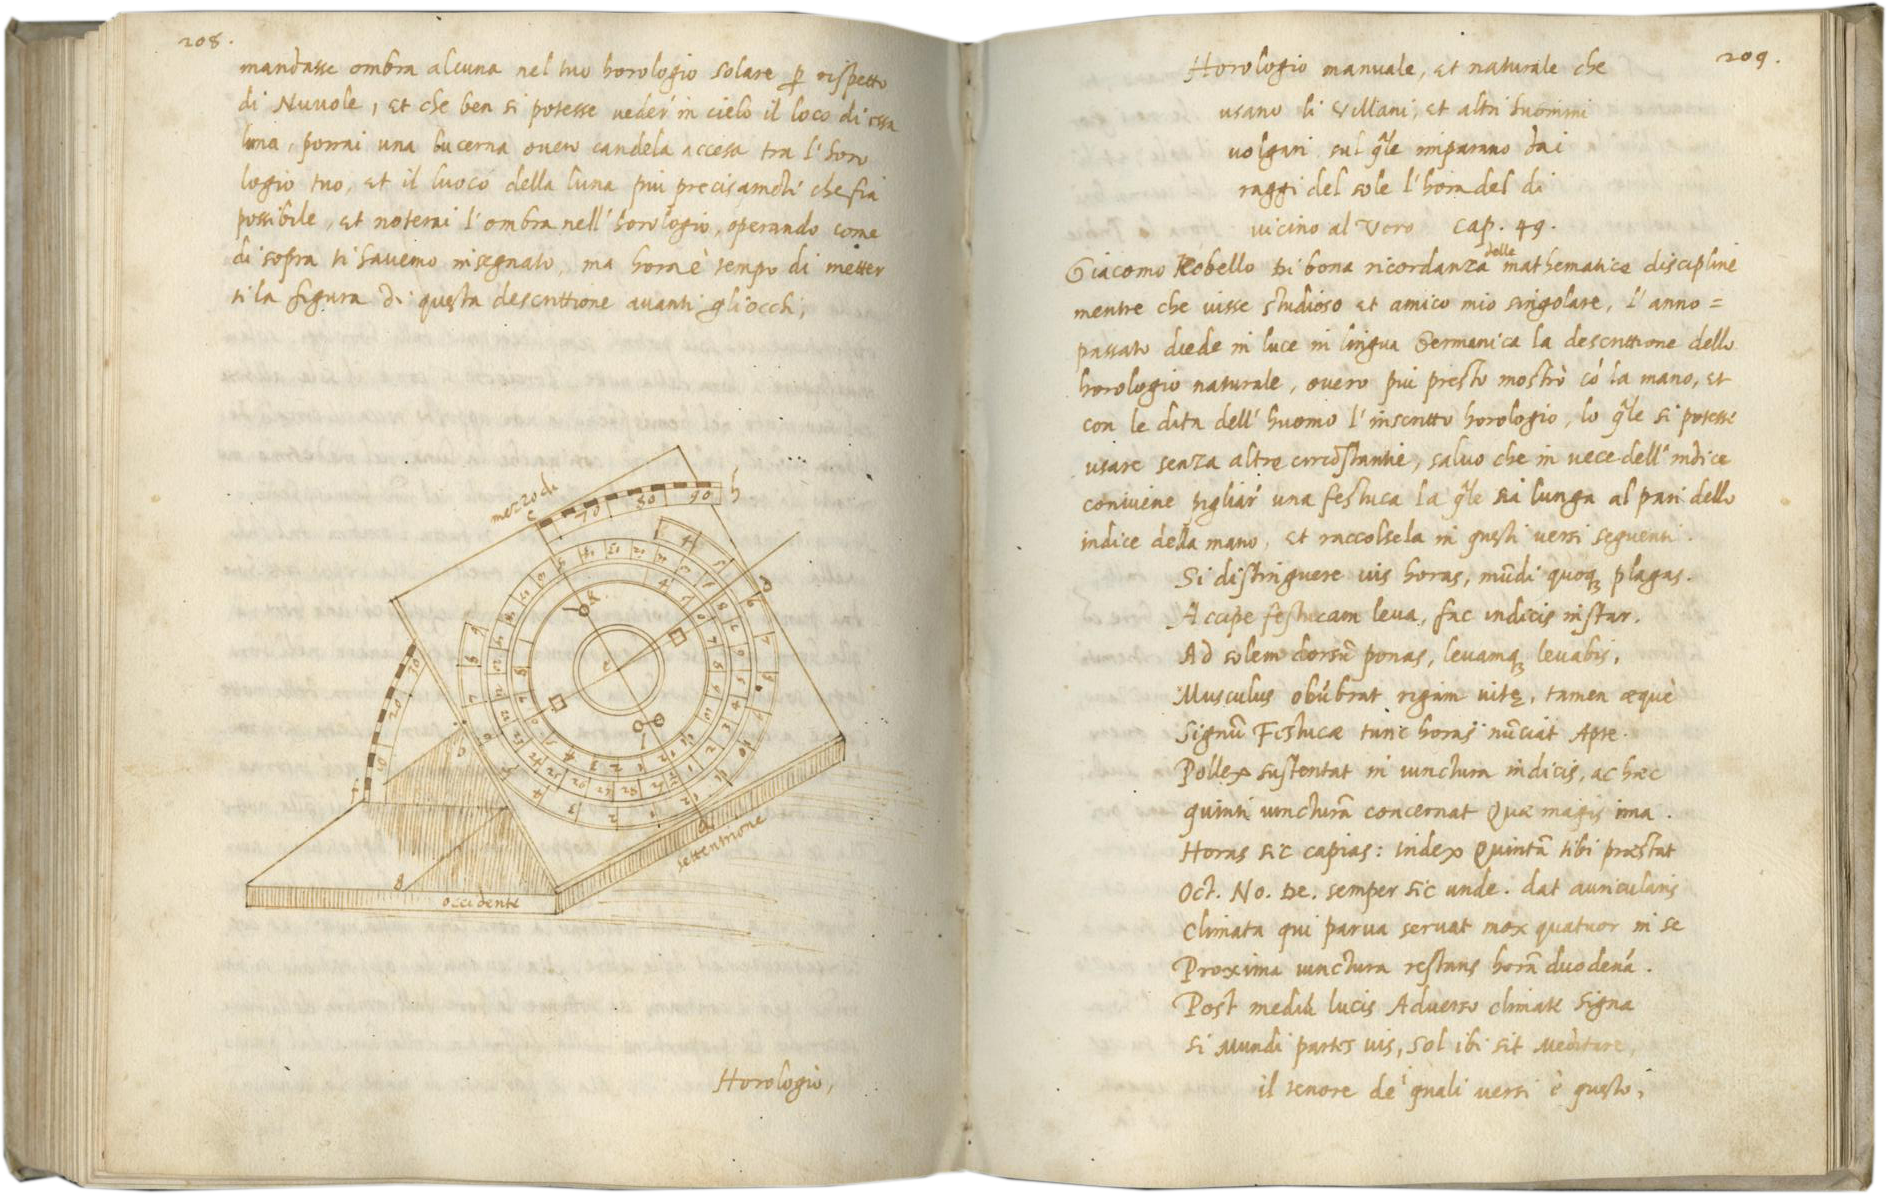 208.
mandasse ombra alcuna nel tuo horologio solare ꝑ rispetto
di Nuvole, et che ben si potesse veder' in cielo il loco di essa
luna, porrai una lucerna overo candela accesa tra l'horo
logio tuo, et il luoco della luna piu precisamēte che sia
possibile, et noterai l'ombra nell'horologio, operando come
di sopra ti havemo insegnato, ma hora è tempo di metter
ti la figura di questa descrittione avanti gliocchi,
mezzo di
c
70
80
90
h
d
K
e
l
30
20
10
b
i
g
a
settentrione
occidente
Horologio,
209.
Horologio manuale, et naturale che
usano li Villani, et altri huomini
volgari sul q̃le imparano dai
raggi del sole l'hora del di
vicino al Vero cap. 49.
Giacomo Kobello di bona ricordanza delle mathematice discipline
mentre che visse studioso et amico mio singolare, l'anno =
passato diede in luce in lingua Germanica la descrittione dello
horologio naturale, overo piu presto mostrò có la mano, et
con le dita dell'huomo l'inscritto horologio, lo q̃le si potesse
usare senza altre circōstantie, salvo che in vece dell'indice
conviene pigliar' una festuca la q̃le sia lunga al pari dello
indice della mano, et raccolsela in questi versi seguenti.
Si distinguere vis horas, mūdi quoqꝫ plagas.
Accipe festucam leva, fac indicis instar.
Ad solem dorsū ponas, levamqꝫ levabis,
Musculus obūbrat rigam vitę, tamen æquè
Signū Festucæ tunc horas nūciat Apte.
Pollex sustentat in iunctura indicis, ac hæc
quinti iuncturā concernat Quæ magis ima.
Horas sic capias: index Quintā tibi præstat
Oct. No. De. semper sic unde. dat auricularis
Climata qui parva servat mox quatuor in se
Proxima iunctura restans horā duodená.
Post mediū lucis Adverso climate signa
Si Mundi partes vis, Sol ibi sit Meditare,
il tenore de i quali versi è questo,